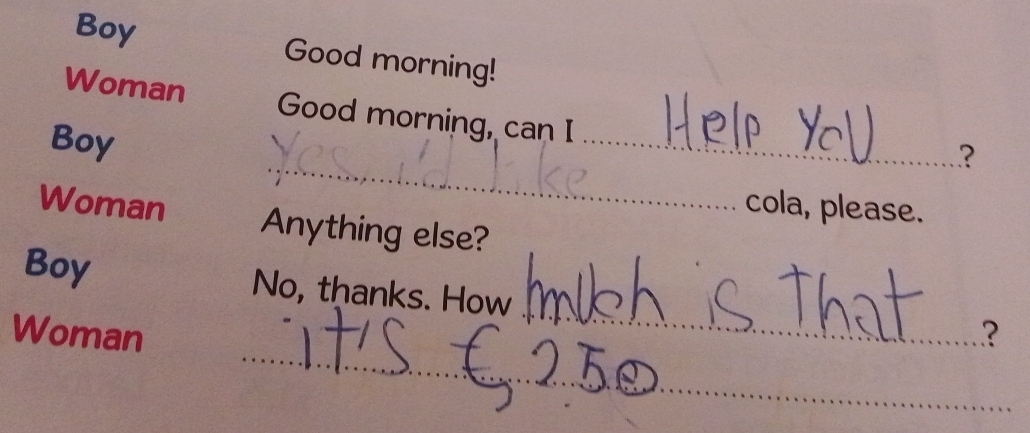 Boy Good morning!
Woman Good morning, can I Help You ?
Boy Yes, i'd like cola, please.
Woman Anything else?
Boy No, thanks. How much is That ?
Woman it's €, 2.50